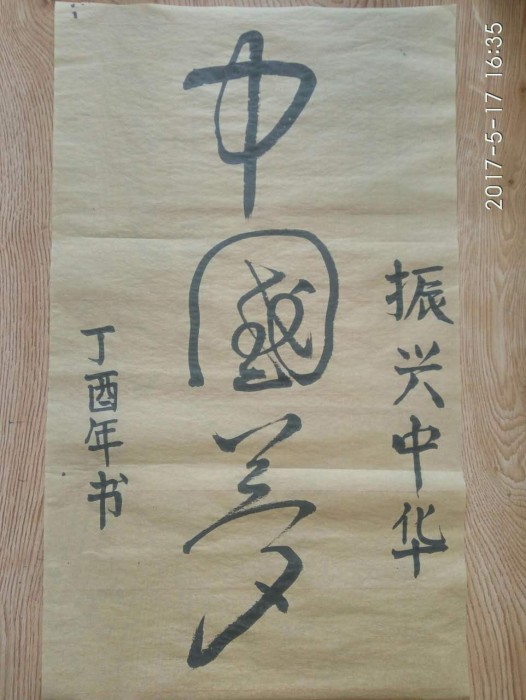 振兴中华
中國夢
丁酉年书
2017-5-17 16:35